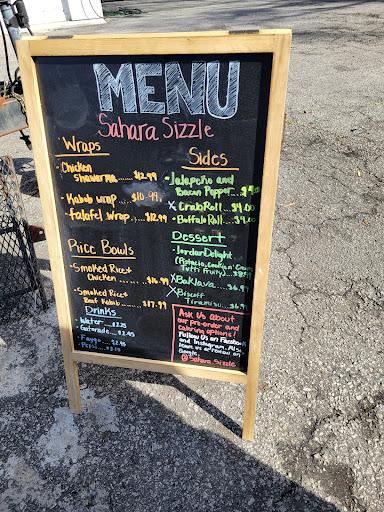 MENU
Sahara Sizzle
Wraps
• Chicken
shawerma......$12.99
• Kabob wrap...$10.99
• falafel wrap...$12.99
Sides
• Jalapeño and
Bacon Popper...
X Crab Roll....$4.00
• Buffalo Roll...
Riice Bowls
• Smoked Rice+
Chicken .......$16.99
• Smoked Rice+
Beef Kabob....$17.99
Dessert
• Jordan Delight
Tutti fruity)...
X Baklava.....$6.99
X Biscoff
Tiramisu...$6.99
Drinks
• Water...$2.25
• Gatorade...$2.45
• Faygo...$2.45
• Pepsi...
Ask Us About
our pre-order and
catering options!
Follow Us on Facebook
and Instagram. Also
leave us a review on
Google.
@Sahara.Sizzle